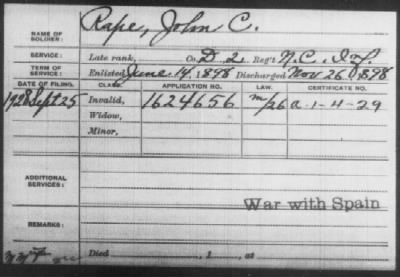 NAME OF SOLDIER: Rape, John C.
SERVICE: Late rank, Co. D 2 Reg't N.C. Inf.
TERM OF SERVICE: Enlisted June 14, 1898 Discharged Nov 26, 1898
DATE OF FILING. CLASS. APPLICATION NO. LAW. CERTIFICATE NO.
1928 Sept 25 Invalid, 1624656 a-1-4-29
Widow,
Minor,
ADDITIONAL SERVICES:
War with Spain
REMARKS:
Died , 1 , at